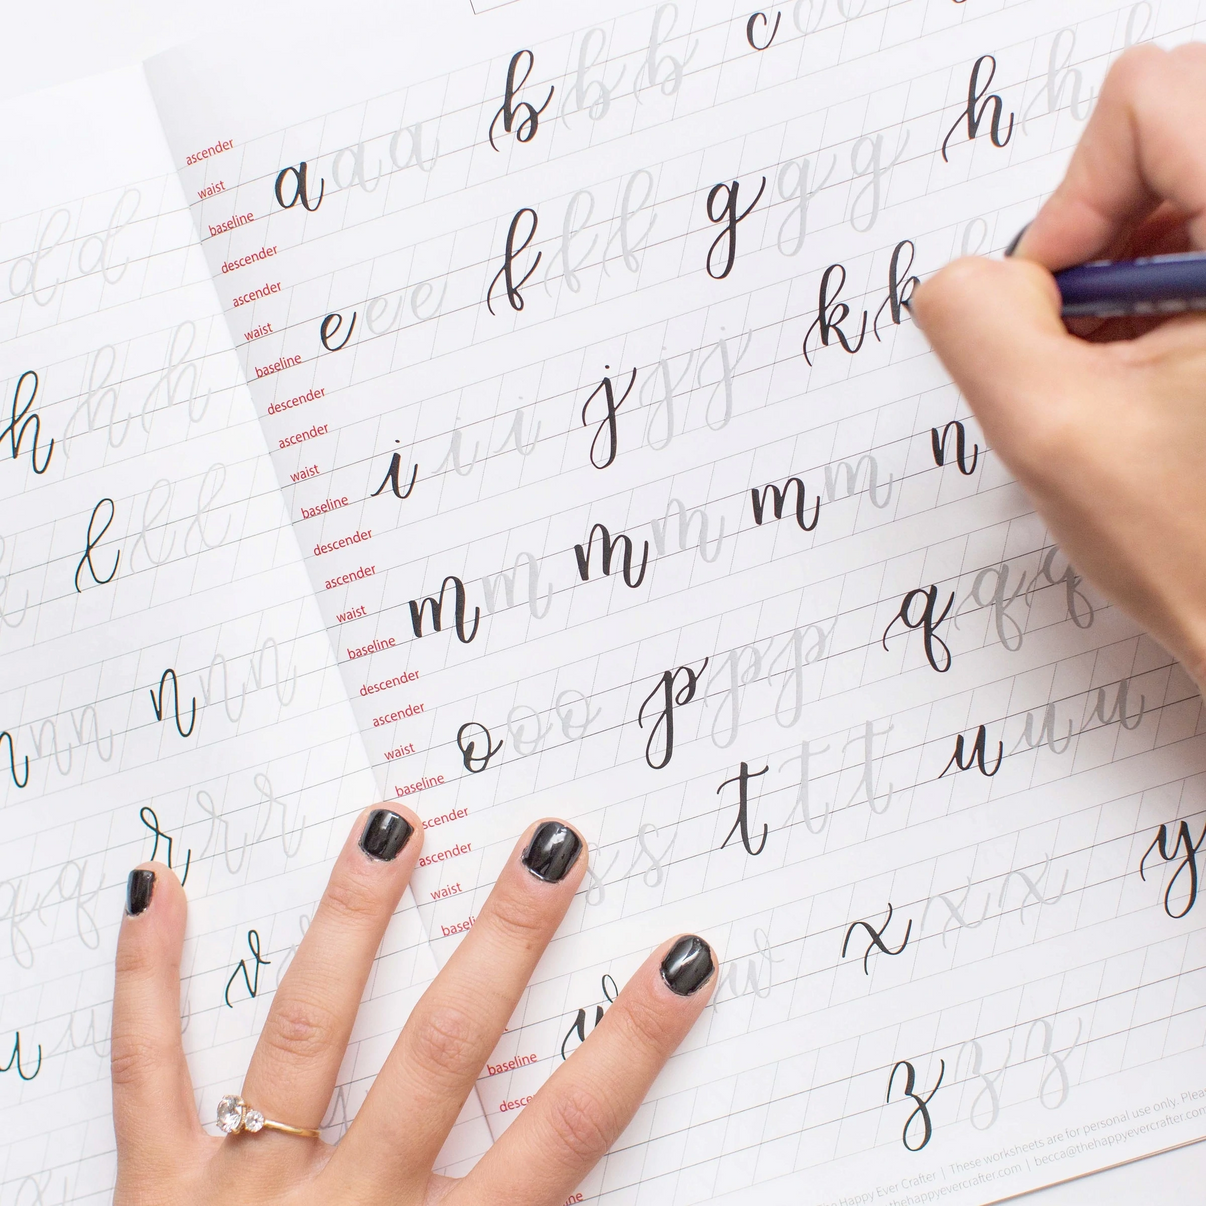 d d
h h h
l l l
n n n n n n
r r r
q q
v
u u
ascender
waist
a a a b b b c c
baseline
descender
ascender
waist
e e e f f f g g g h h h
baseline
descender
ascender
waist
i i i j j j k k
baseline
descender
ascender
waist
m m m m m m n
baseline
descender
ascender
waist
o o o p p p q q q
baseline
scender
ascender
waist
s s t t t u u u
baseli
w w x x x y
baseline
desce
z z z
ne
Happy Ever Crafter | These worksheets are for personal use only. Plea
thehappyevercrafter.com | becca@thehappyevercrafter.com